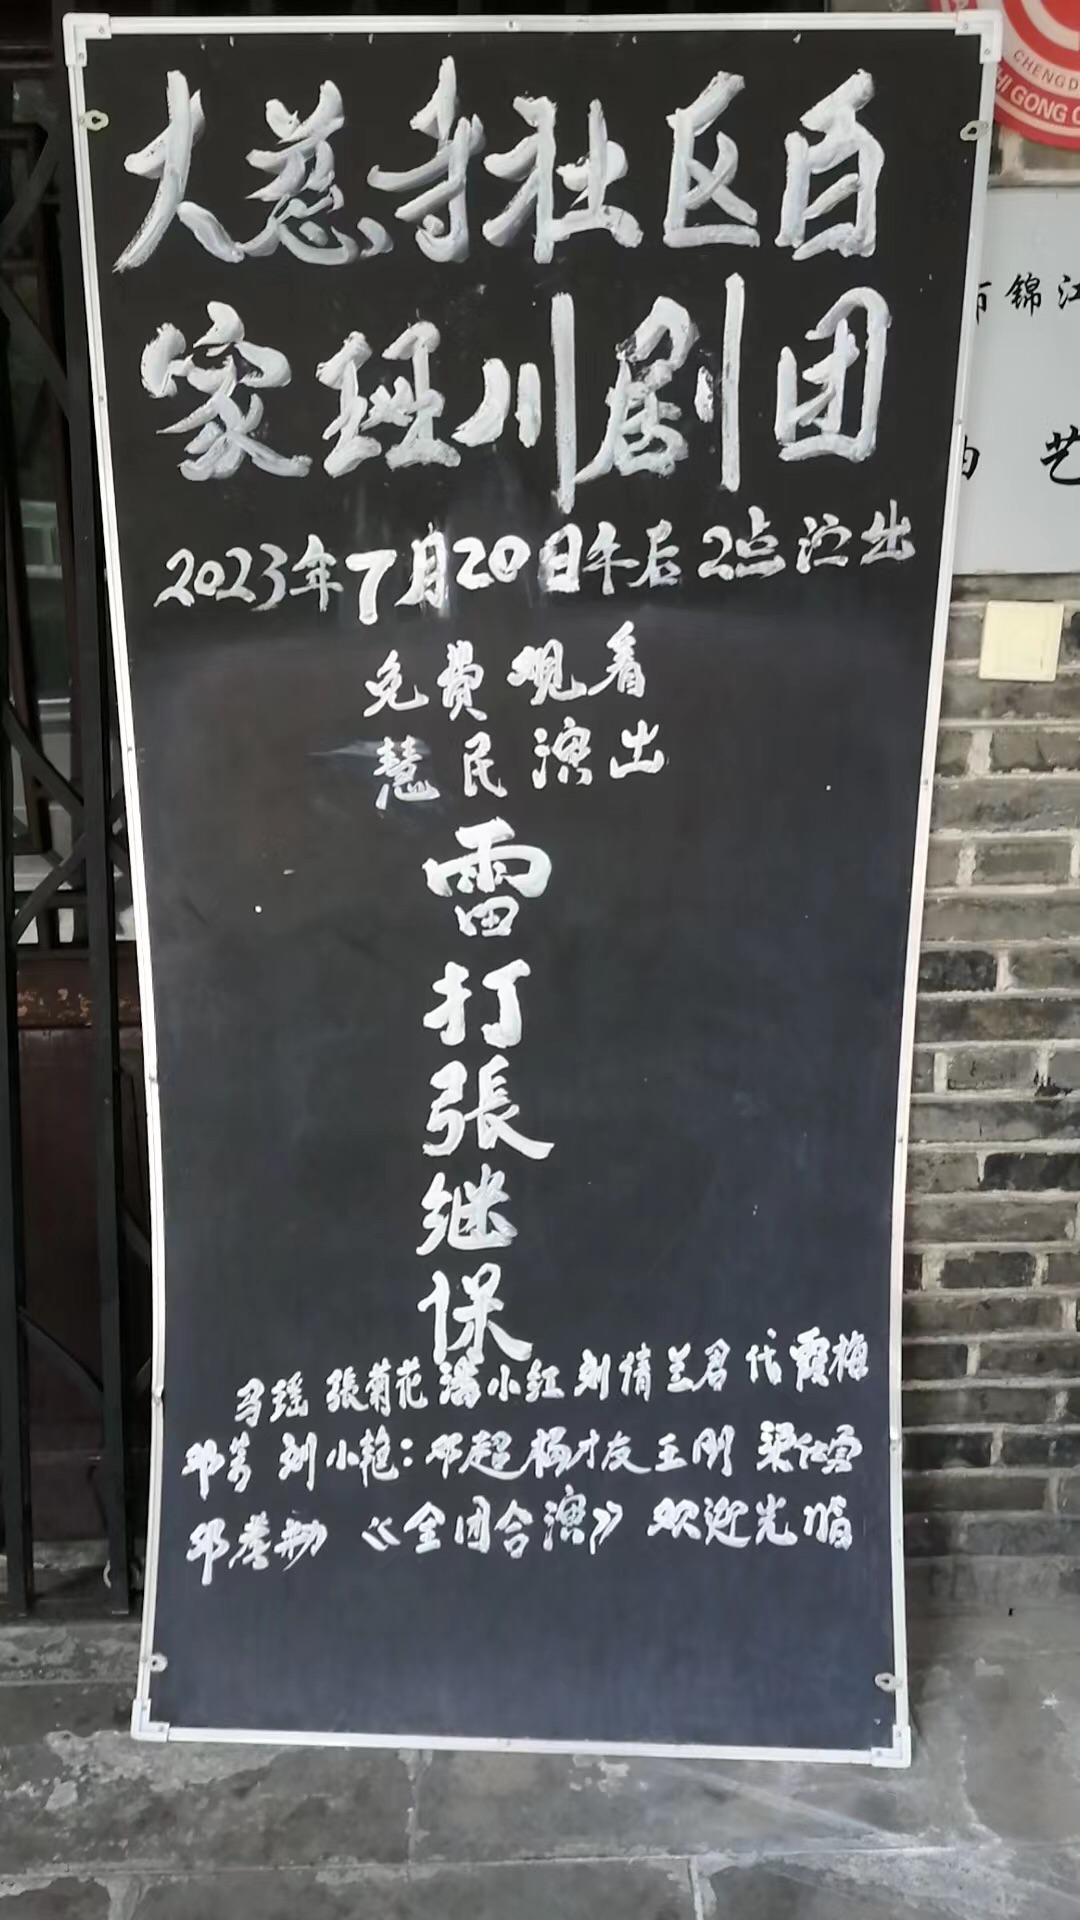 大慈寺社区百
家班川剧团
2023年7月20日午后2点演出
免费观看
慧民演出
雷
打
張
继
保
马瑶 張菊花 潘小红 刘倩 兰君 代霞梅
邓芳 刘小艳：邓超 杨才友 王刚 梁仕宫
邓 《全团合演》 欢迎光临
CHENGD
HI GONG C
市锦江
艺